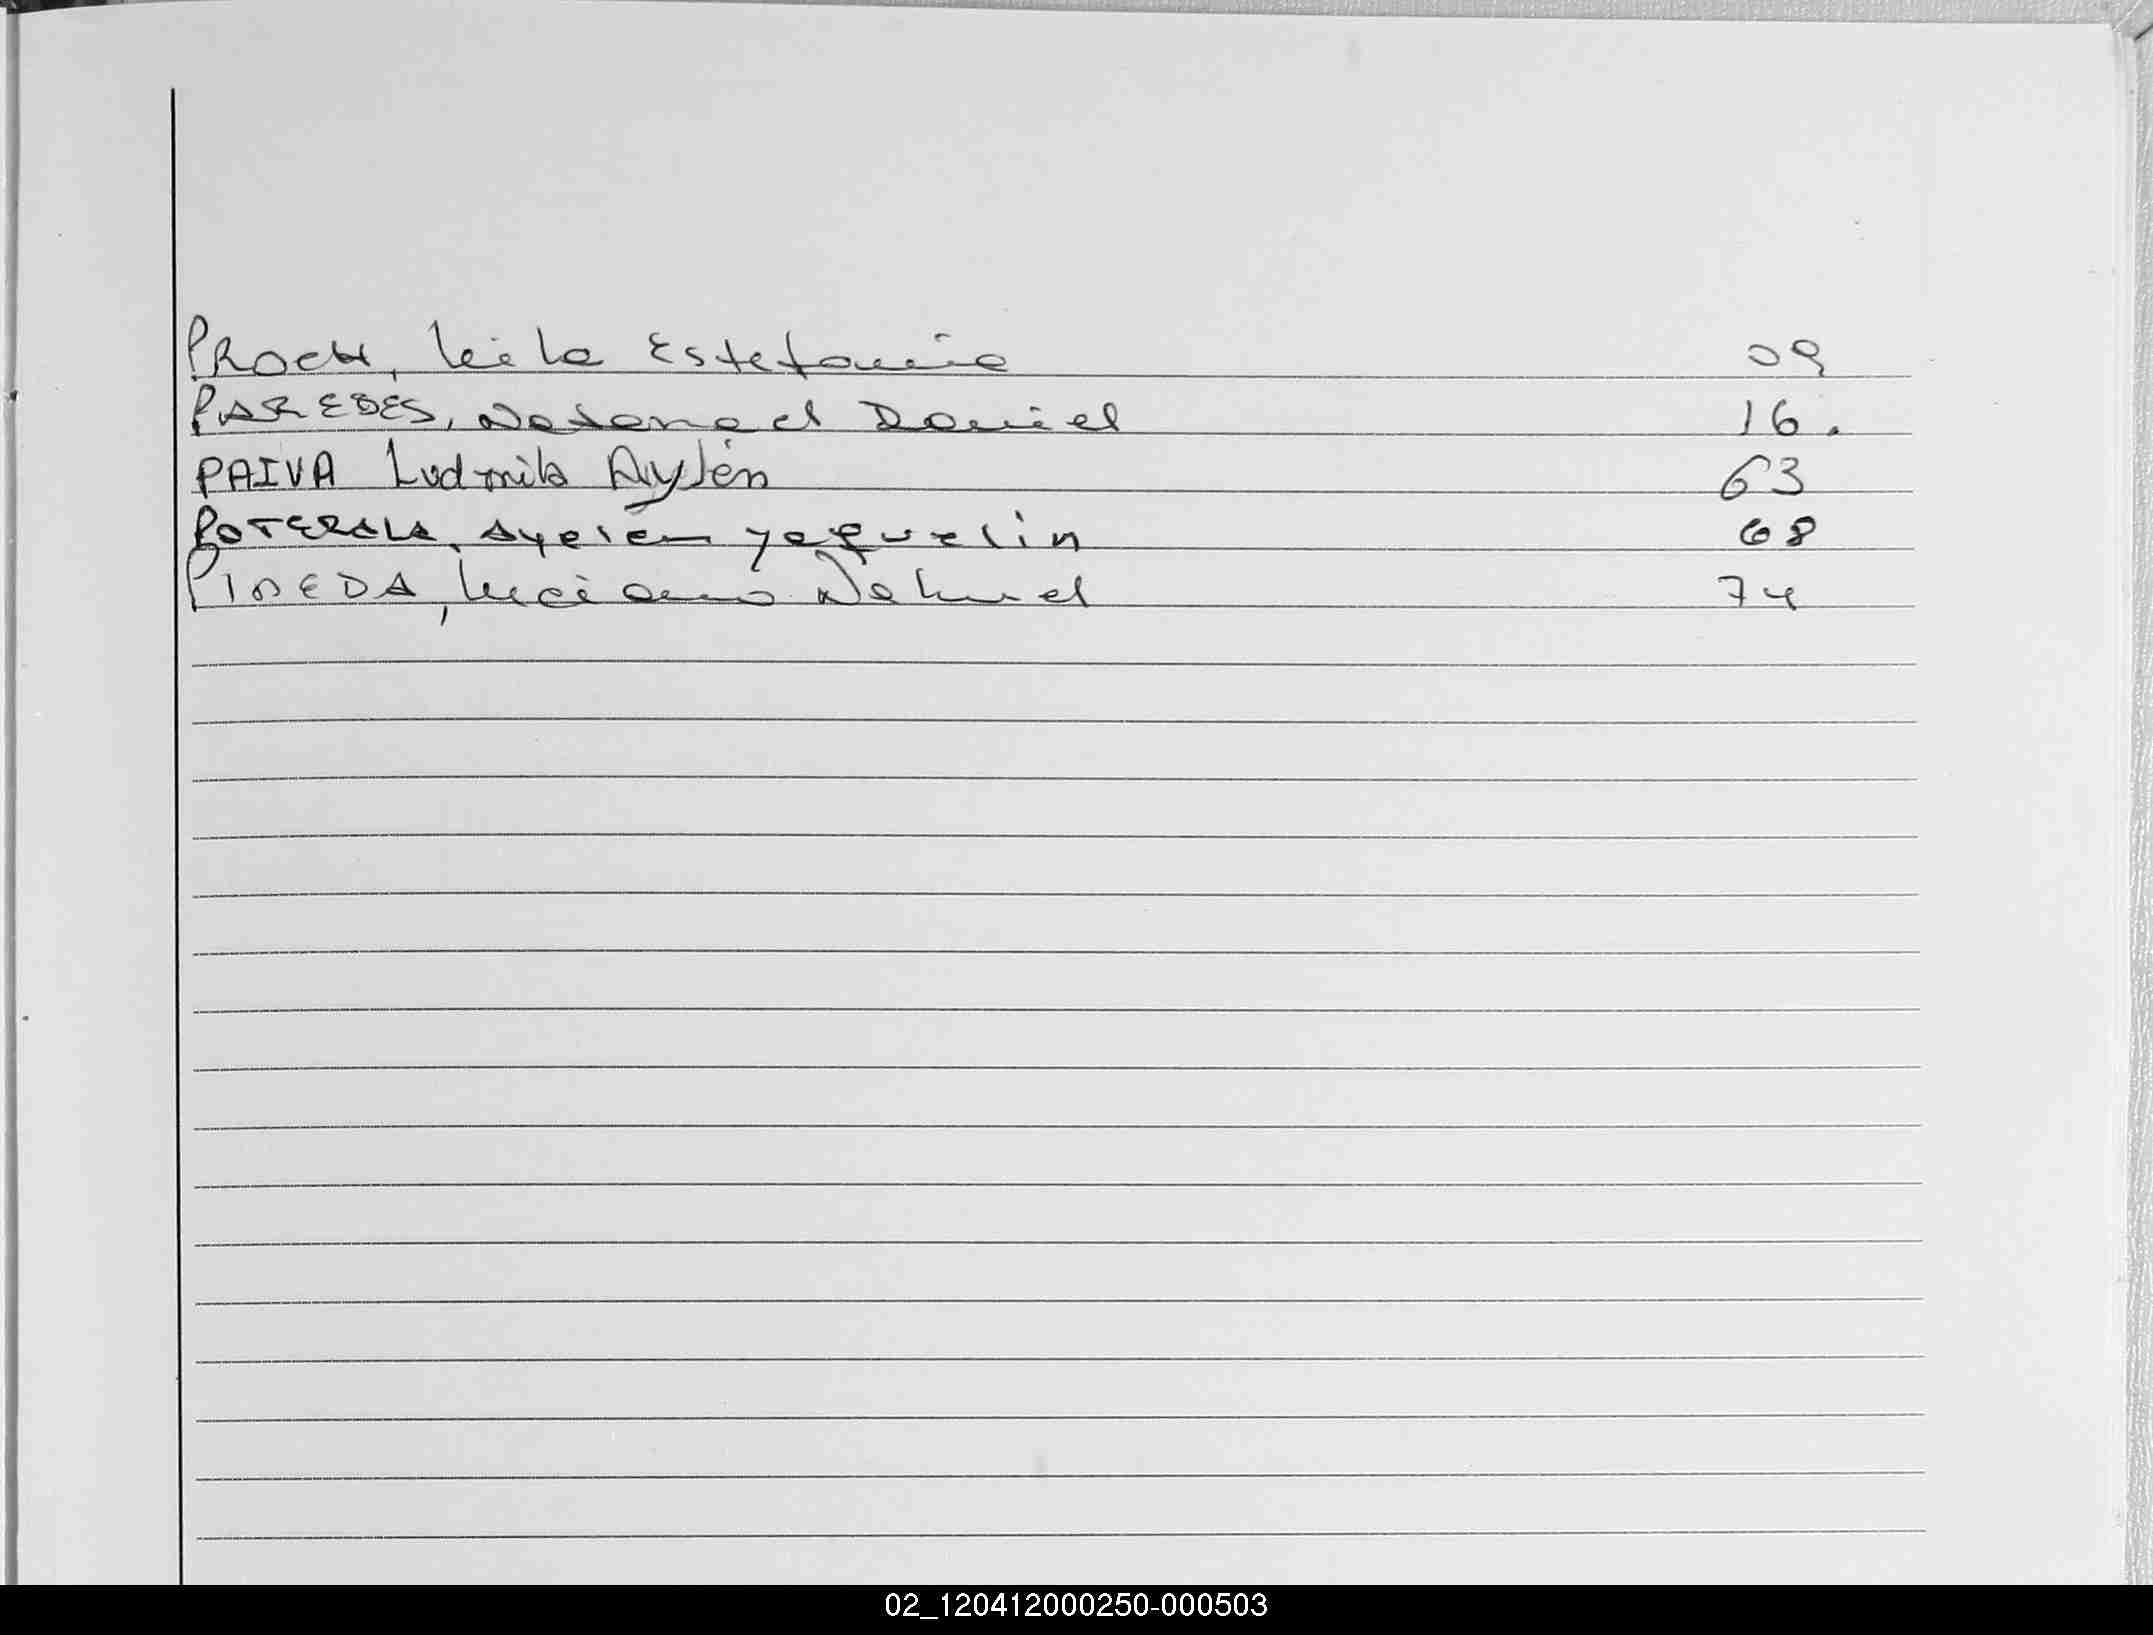 PROCH, Leila Estefania 09
PAREDES, Natanael Daniel 16.
PAIVA Ludmila Aylén 63
POTERALA, Ayelén yaquelin 68
PINEDA, Luciano Nahuel 74
02_120412000250-000503